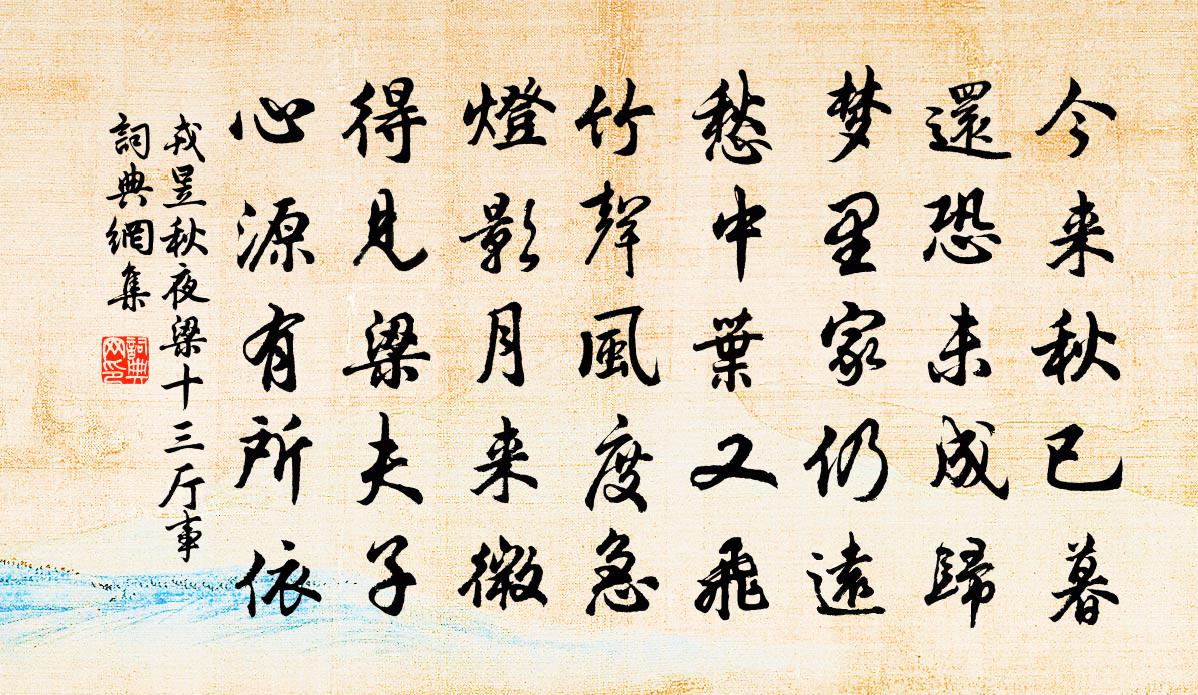 今来秋已暮
還恐未成歸
梦里家仍遠
愁中葉又飛
竹聲風度急
燈影月来微
得見梁夫子
心源有所依
戎昱秋夜梁十三厅事
詞典網集
詞典网印